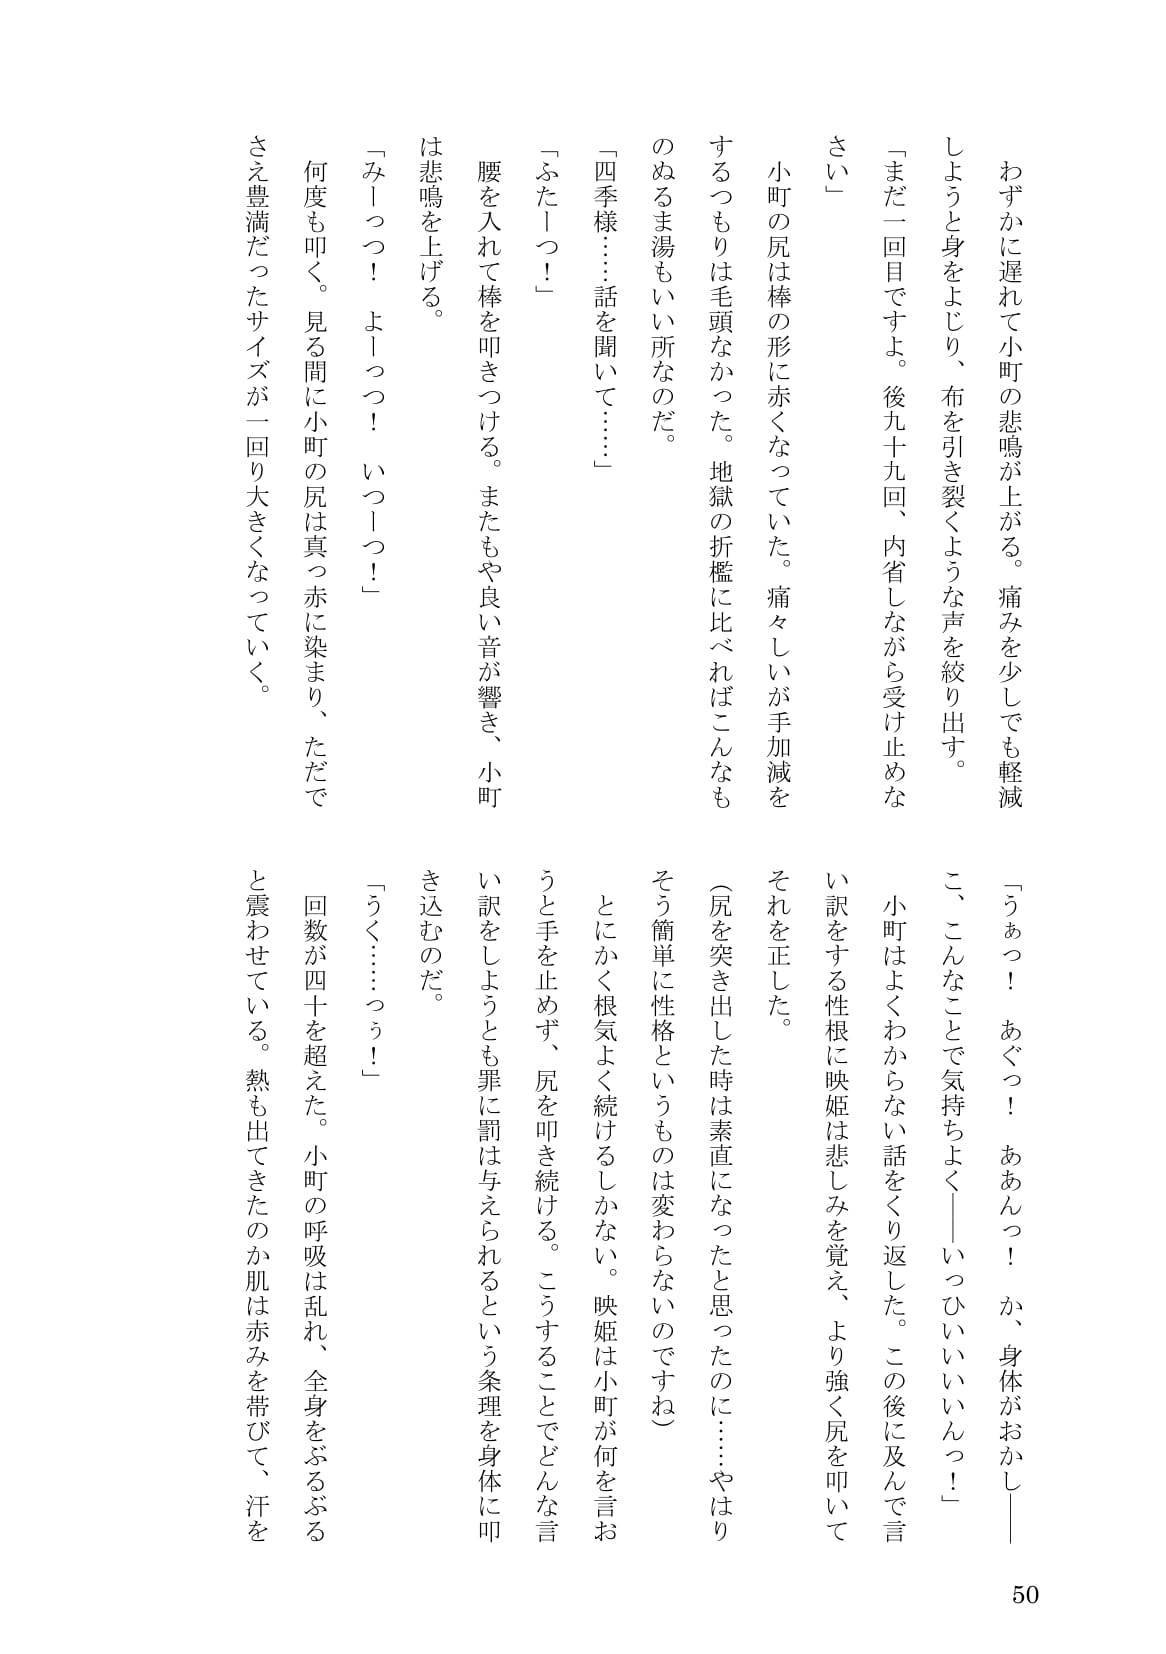 わずかに遅れて小町の悲鳴が上がる。痛みを少しでも軽減
しようと身をよじり、布を引き裂くような声を絞り出す。
「まだ一回目ですよ。後九十九回、内省しながら受け止めな
さい」
小町の尻は棒の形に赤くなっていた。痛々しいが手加減を
するつもりは毛頭なかった。地獄の折檻に比べればこんなも
のぬるま湯もいい所なのだ。
「四季様……話を聞いて……」
「ふたーつ！」
腰を入れて棒を叩きつける。またもや良い音が響き、小町
は悲鳴を上げる。
「みーっつ！　よーっつ！　いつーつ！」
何度も叩く。見る間に小町の尻は真っ赤に染まり、ただで
さえ豊満だったサイズが一回り大きくなっていく。
「うぁっ！　あぐっ！　ああんっ！　か、身体がおかし――
こ、こんなことで気持ちよく――いっひいいいいんっ！」
小町はよくわからない話をくり返した。この後に及んで言
い訳をする性根に映姫は悲しみを覚え、より強く尻を叩いて
それを正した。
（尻を突き出した時は素直になったと思ったのに……やはり
そう簡単に性格というものは変わらないのですね）
とにかく根気よく続けるしかない。映姫は小町が何を言お
うと手を止めず、尻を叩き続ける。こうすることでどんな言
い訳をしようとも罪に罰は与えられるという条理を身体に叩
き込むのだ。
「うく……っう！」
回数が四十を超えた。小町の呼吸は乱れ、全身をぶるぶる
と震わせている。熱も出てきたのか肌は赤みを帯びて、汗を
50